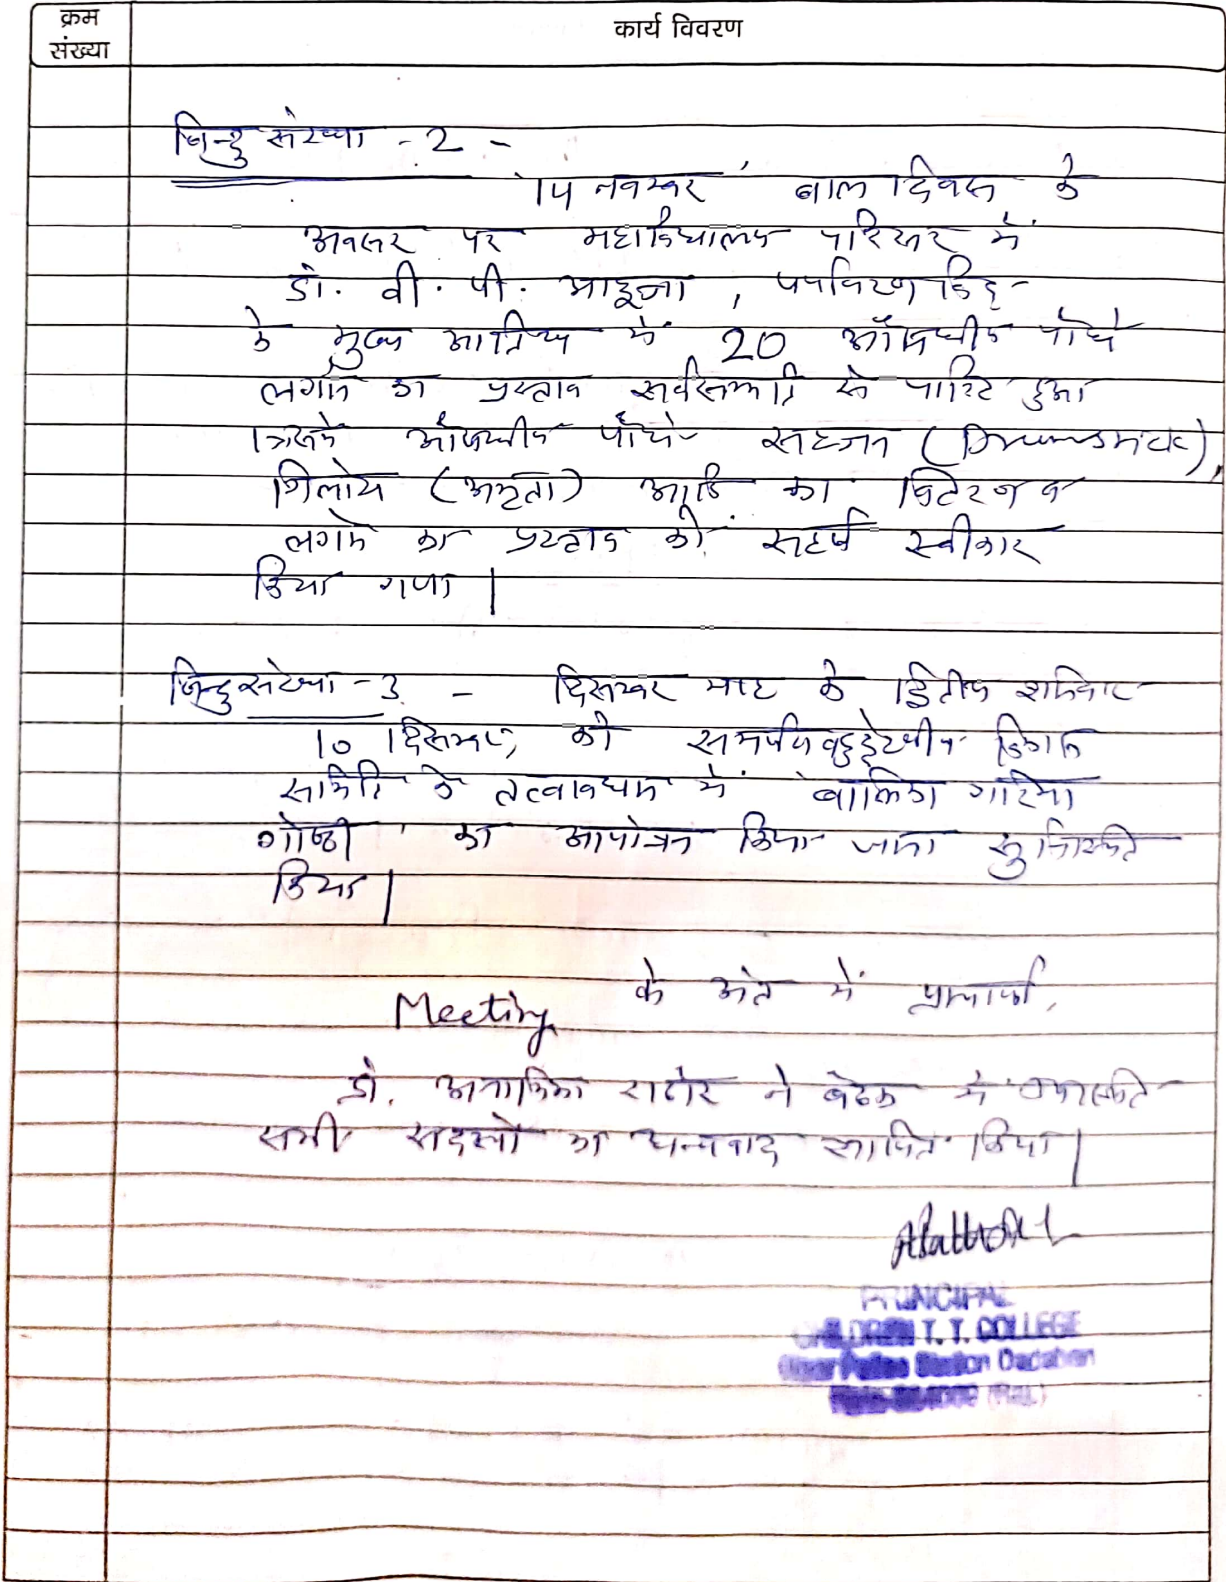 क्रम
संख्या
कार्य विवरण
बिन्दु संख्या - 2 -
14 नवम्बर बाल दिवस के
अवसर पर महाविद्यालय परिसर में
डॉ. वी. पी. आहूजा, पर्यावरणविद्
के मुख्य आतिथ्य में 20 औषधीय पौधे
लगाने का प्रस्ताव सर्वसम्मति से पारित हुआ
जिसमें औषधीय पौधे सहजन (Drumstick),
गिलोय (अमृता) आदि का वितरण व
लगाने का प्रस्ताव को सहर्ष स्वीकार
किया गया |
बिन्दु संख्या - 3 - दिसम्बर माह के द्वितीय शनिवार
10 दिसम्बर, को समर्पण बहुउद्देश्यीय विकास
समिति के तत्वावधान में बालिका गरिमा
गोष्ठी का आयोजन किया जाना सुनिश्चित
किया |
Meeting के अंत में प्राचार्या,
डॉ. अनामिका राठौर ने बैठक में उपस्थित
सभी सदस्यों का धन्यवाद ज्ञापित किया |
PRINCIPAL
CHILDREN T. T. COLLEGE
Near Police Station Dadabari